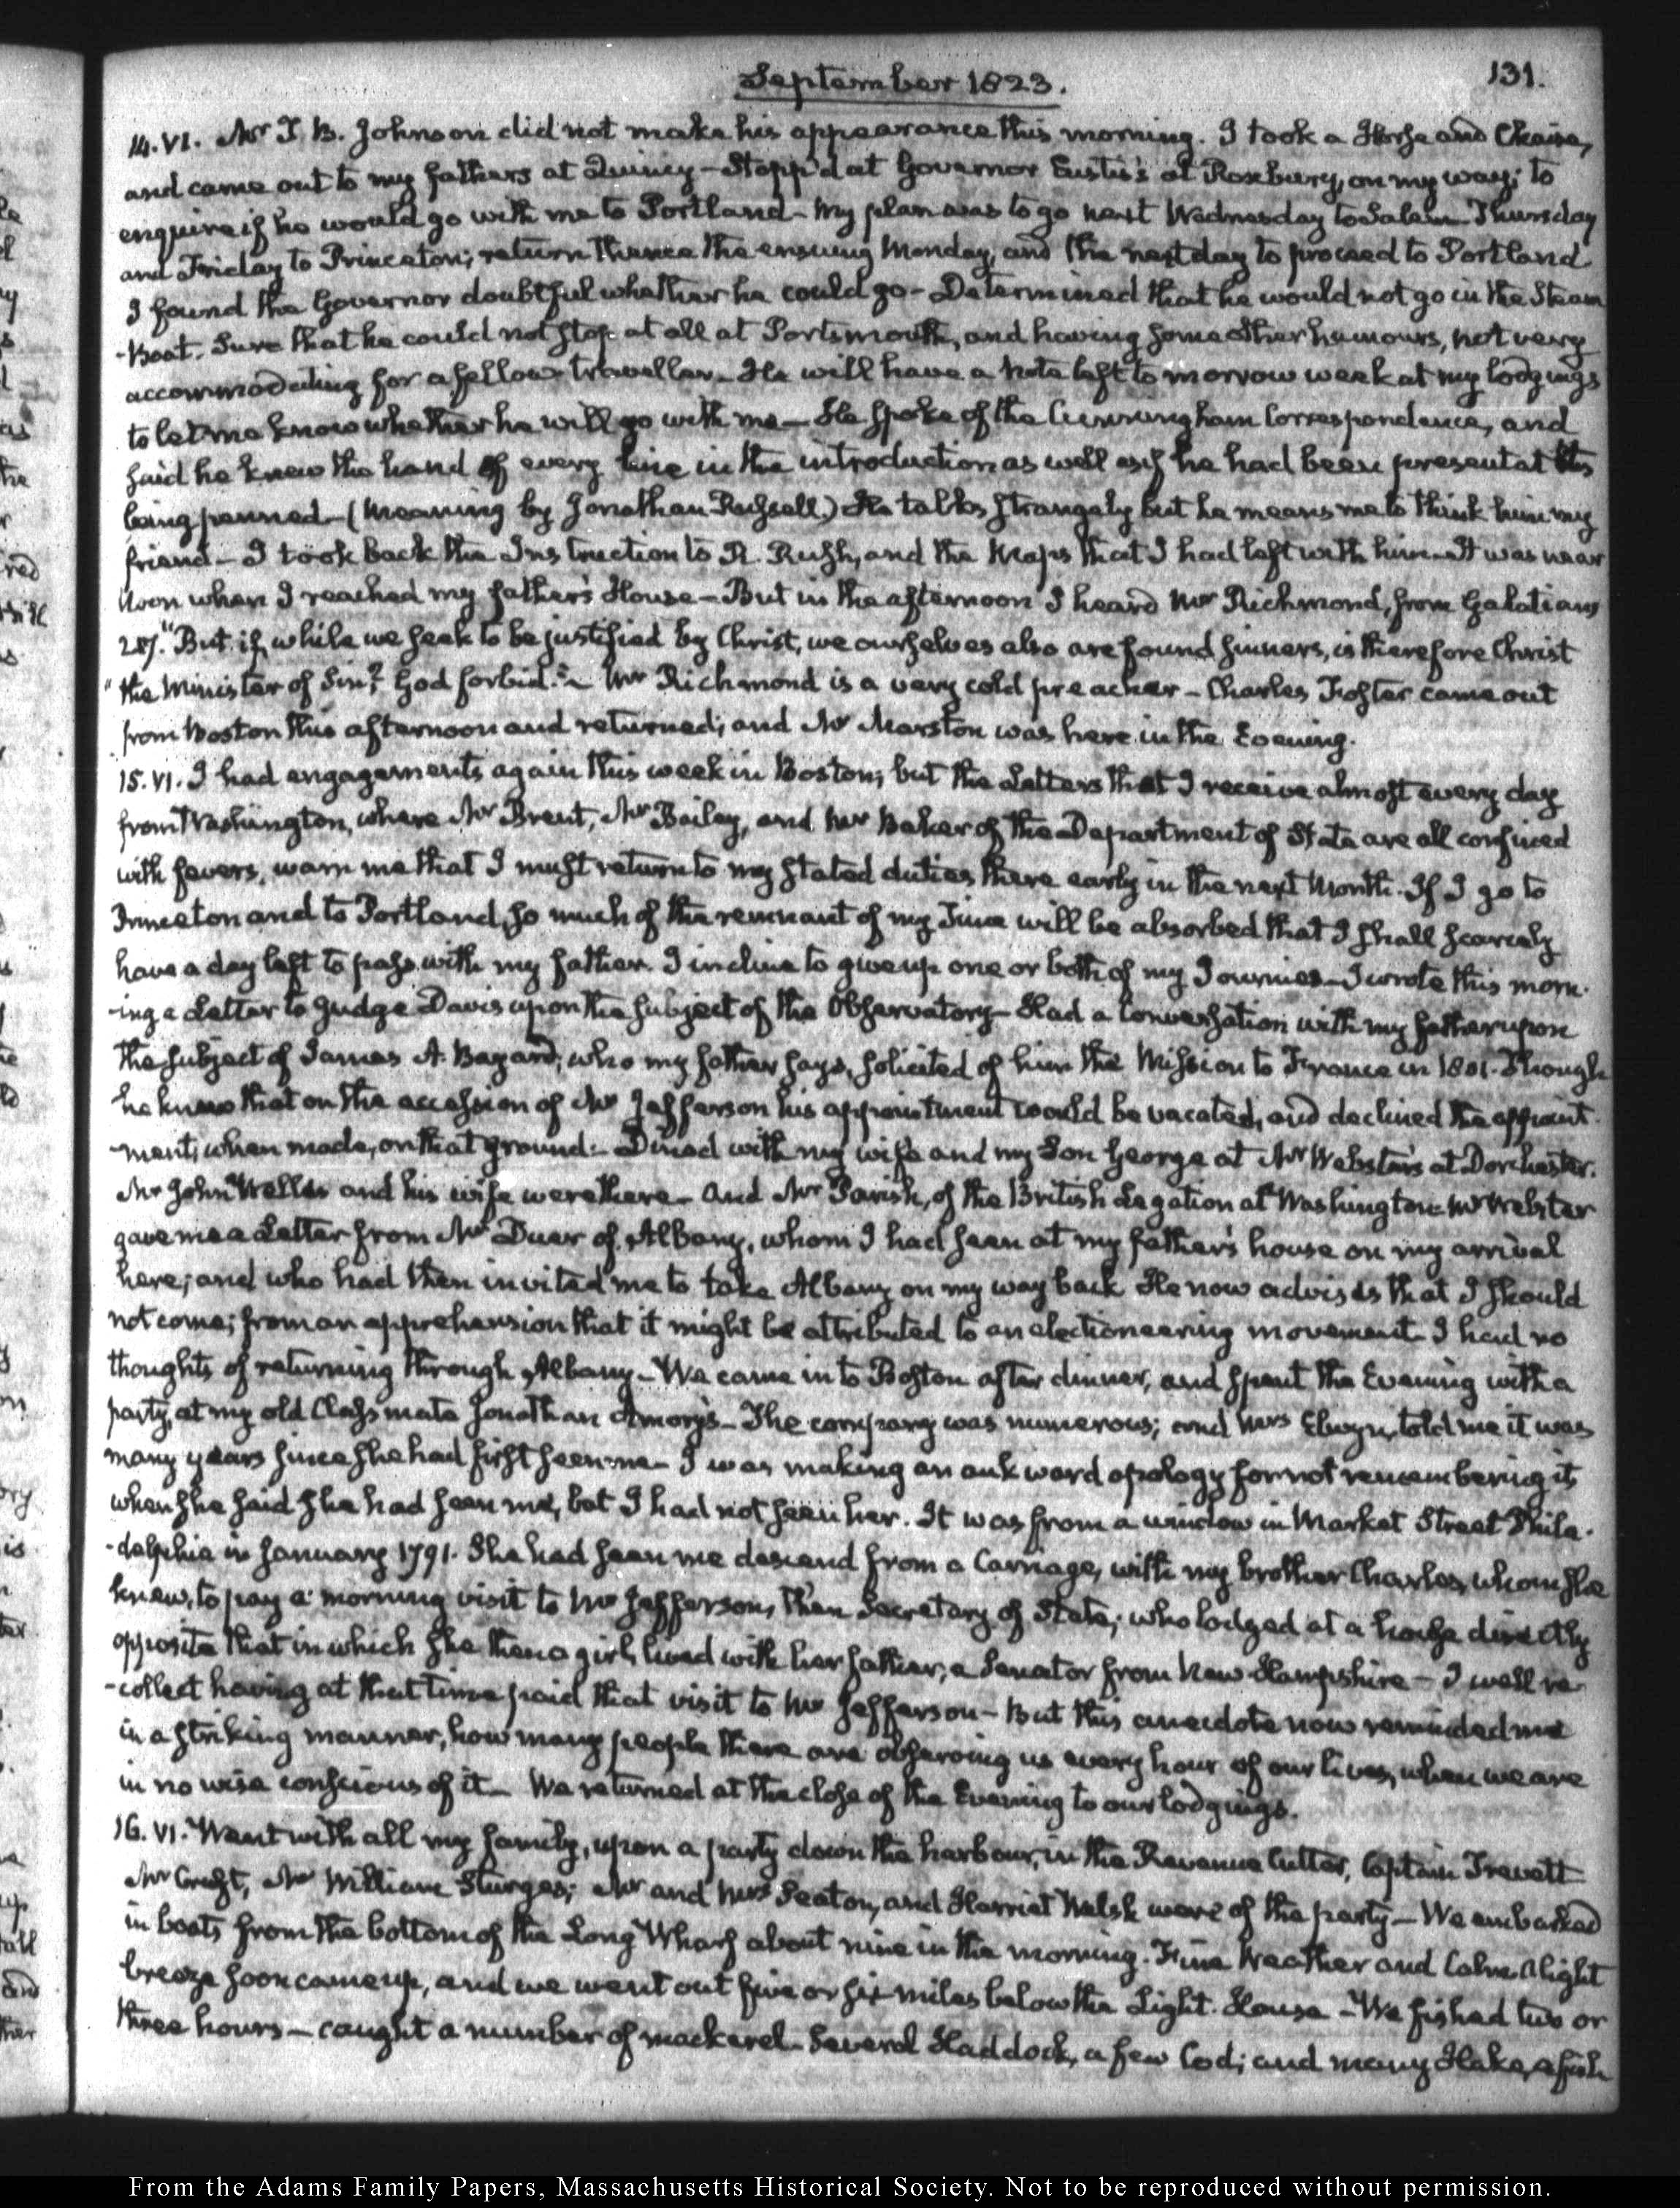 September 1823.
131.
14. VI. Mr J. B. Johnson did not make his appearance this morning. I took a Horse and Chaise,
and came out to my fathers at Quincy – Stopp'd at Governor Eustis's at Roxbury, on my way; to
enquire if he would go with me to Portland – My plan was to go next Wednesday to Salem – Thursday
and Friday to Princeton; return thence the ensuing Monday, and the next day to proceed to Portland
I found the Governor doubtful whether he could go – Determined that he would not go in the Steam
-Boat. Sure that he could not stop at all at Portsmouth, and having some other humours, not very
accommodating for a fellow traveller – He will have a Note left to morrow week at my lodgings
to let me know whether he will go with me – He spoke of the Cunningham Correspondence, and
said he knew the hand of every line in the introduction as well as if he had been present at its
being penned – (Meaning by Jonathan Russell.) He talks strangely but he means me to think him my
friend – I took back the Instruction to R. Rush, and the Maps that I had left with him – It was near
Noon when I reached my father's House – But in the afternoon I heard Mr Richmond, from Galatians
2.17. "But if, while we seek to be justified by Christ, we ourselves also are found sinners, is therefore Christ
"the Minister of Sin? God forbid." – Mr Richmond is a very cold preacher – Charles Foster came out
from Boston this afternoon and returned; and Mr Marston was here in the Evening.
15. VI. I had engagements again this week in Boston; but the Letters that I receive almost every day
from Washington, where Mr Brent, Mr Bailey, and Mr Baker of the Department of State are all confined
with fevers, warn me that I must return to my stated duties there early in the next Month. If I go to
Princeton and to Portland, so much of the remnant of my Time will be absorbed that I shall scarcely
have a day left to pass with my father. I incline to give up one or both of my Journies – I wrote this morn-
-ing a Letter to Judge Davis upon the subject of the Observatory – Had a Conversation with my father upon
the subject of James A. Bayard; who my father says, solicited of him the Mission to France in 1801. Though
he knew that on the accession of Mr Jefferson his appointment would be vacated, and declined the appoint-
-ment, when made, on that ground – Dined with my wife and my Son George at Mr Webster's at Dorchester.
Mr John Welles and his wife were there – And Mr Parish, of the British Legation at Washington – Mr Webster
gave me a Letter from Mr Duer of Albany, whom I had seen at my father's house on my arrival
here; and who had then invited me to take Albany on my way back He now advises that I should
not come; from an apprehension that it might be attributed to an electioneering movement – I had no
thoughts of returning through Albany – We came in to Boston after dinner, and spent the Evening with a
party, at my old Classmate Jonathan Amory's – The company was numerous; and Mrs Elwyn, told me it was
many years since she had first seen me – I was making an aukward apology for not remembering it,
when she said she had seen me, but I had not seen her. It was from a window in Market Street Phila-
-delphia in January 1791. She had seen me descend from a Carriage, with my brother Charles, whom she
knew, to pay a morning visit to Mr Jefferson, then Secretary of State; who lodged at a house directly
opposite that in which she then a girl, lived with her father; a Senator from New-Hampshire – I well re-
-collect having at that time paid that visit to Mr Jefferson – But this anecdote now reminded me
in a striking manner, how many people there are observing us every hour of our lives, when we are
in no wise conscious of it – We returned at the close of the Evening to our lodgings.
16. VI. Went with all my family, upon a party down the harbour, in the Revenue Cutter, Captain Trevett
Mr Cruft, Mr William Sturges; Mr and Mrs Seaton, and Harriet Welsh were of the party – We embarked
in boats from the bottom of the Long Wharf about nine in the morning. Fine Weather and Calm. A light
breeze soon came up, and we went out five or six miles below the Light-House – We fished two or
three hours – caught a number of mackerel – Several Haddock, a few Cod; and many Hake, a fish
From the Adams Family Papers, Massachusetts Historical Society. Not to be reproduced without permission.